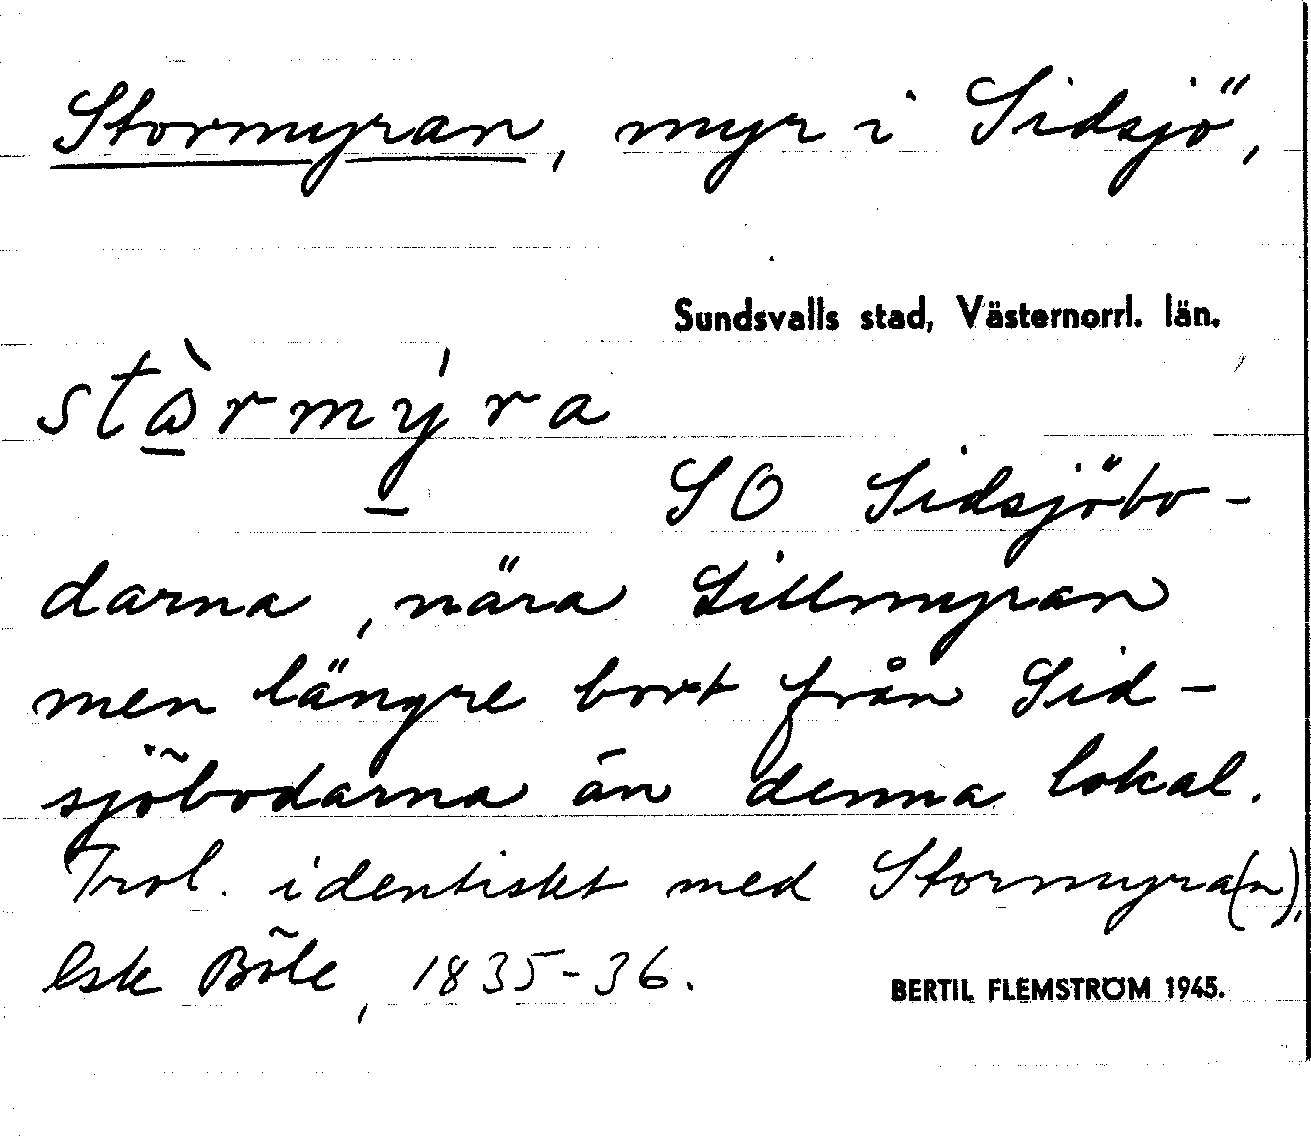 Stormyran, myr i Sidsjö,
Sundsvalls stad, Västernorrl. län.
stɷ̠̀rmý̠ra
SO Sidsjöbo-
darna, nära Lillmyran
men längre bort från Sid-
sjöbodarna än denna lokal.
Trol. identiskt med Stormyra(n),
lsk Böle, 1835-36.
BERTIL FLEMSTRÖM 1945.